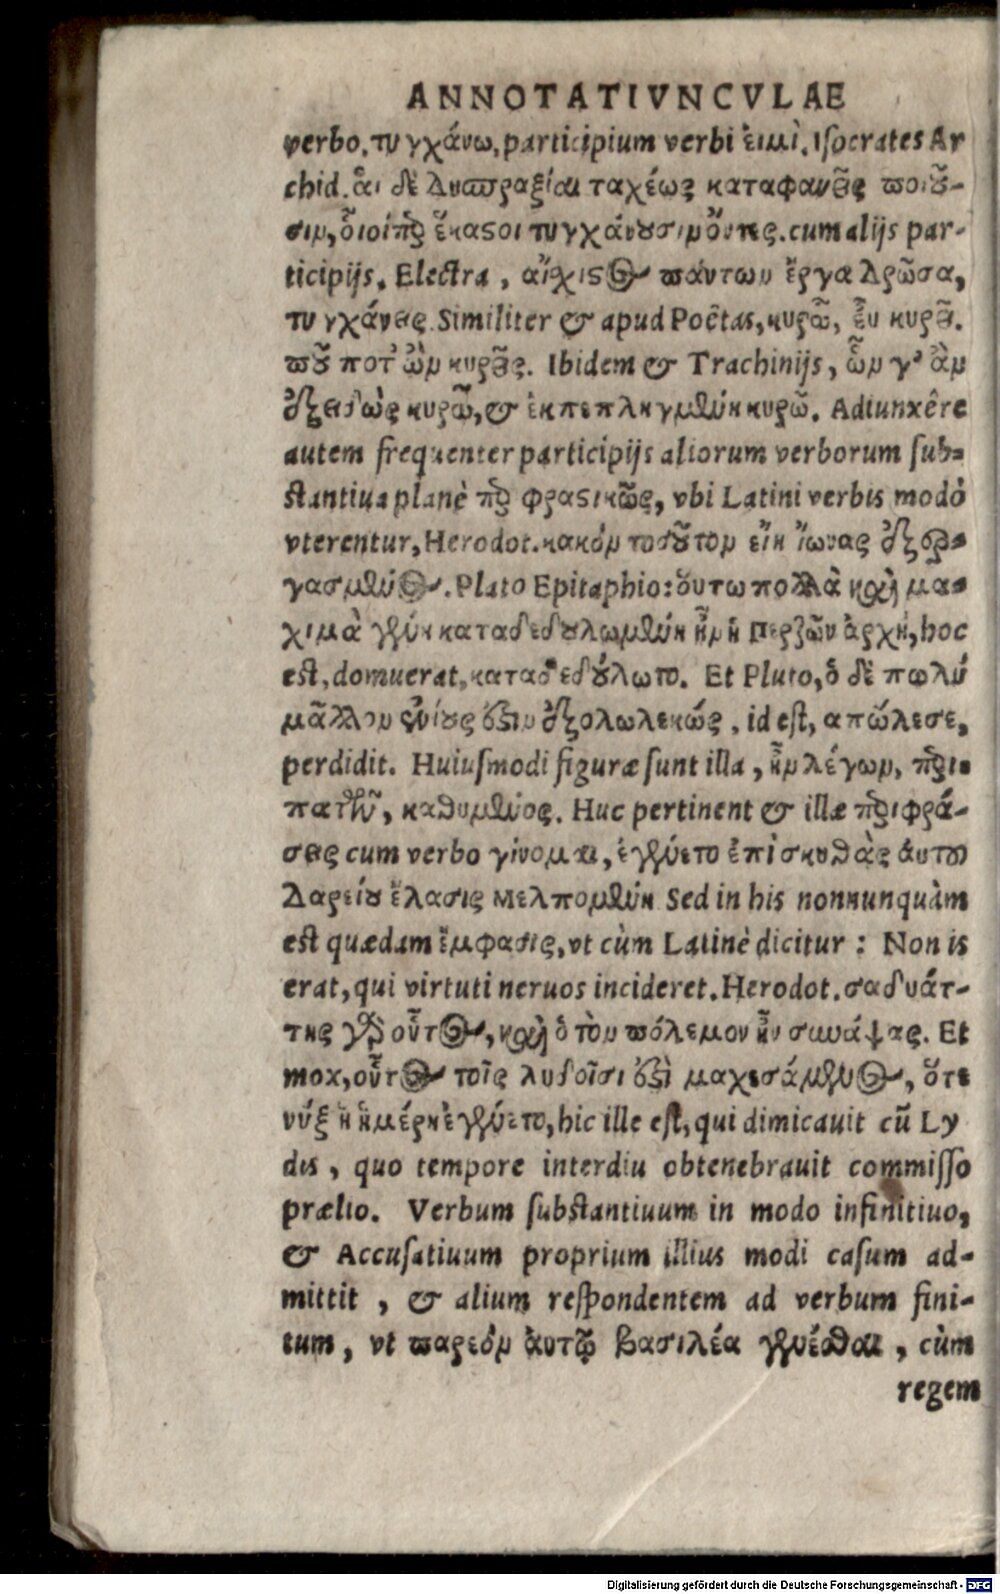 ANNOTATIVNCVLAE
verbo, τυγχάνω, participium verbi εἰμὶ. Isocrates Ar
chid. ἁι δὲ δυσπραξίαι ταχέως καταφανεῖς ποιοῦ-
σιν, ὁιοίπερ ἕκαστοι τυγχάνουσιν ὄντες. cum alijs par-
ticipijs. Electra, αἴχιστος πάντων ἔργα δρῶσα,
τυγχάνεις. Similiter & apud Poëtas, κυρῶ, ἐυ κυρεῖ.
ποῦ ποτ' ὢν κυρεῖς. Ibidem & Trachinijs, ὧν γ' ἂν
ἐξειδὼς κυρῶ, & ἐκπεπληγμένη κυρῶ. Adiunxêre
autem frequenter participijs aliorum verborum sub-
stantiua planè περιφραστικῶς, vbi Latini verbis modò
vterentur, Herodot. κακὸν τοσοῦτον εἴη ἴωνας ἐξερ-
γασμένος. Plato Epitaphio: ὅυτω πολλὰ καὶ μα-
χιμὰ γένη καταδεδουλωμένη ἦν ἡ Περσῶν ἀρχή, hoc
est, domuerat, καταδεδούλωτο. Et Pluto, ὁ δὲ πολύ
μᾶλλον ἐνίους ἐστιν ἐξολωλεκώς, id est, απώλεσε,
perdidit. Huiusmodi figuræ sunt illa, ἦν λέγων, περι-
πατῶν, καθημένος. Huc pertinent & illæ περιφρά-
σεις cum verbo γίνομαι, ἐγένετο ἐπὶ σκυθὰς ἀυτοῦ
Δαρείου ἔλασις Μελπομένη Sed in his nonnunquàm
est quædam ἔμφασις, vt cùm Latinè dicitur: Non is
erat, qui virtuti neruos incideret. Herodot. σαδυάτ-
της γὰρ οὗτος, καὶ ὁ τὸν πόλεμον ἦν συνάψας. Et
mox, οὗτος τοῖς λυδοῖσι ἐστὶ μαχεσάμενος, ὅτε
νύξ ἡ ἡμέρη ἐγένετο, hic ille est, qui dimicauit cū Ly
dis, quo tempore interdiu obtenebrauit commisso
prælio. Verbum substantiuum in modo infinitiuo,
& Accusatiuum proprium illius modi casum ad-
mittit, & alium respondentem ad verbum fini-
tum, vt παρεὸν ἀυτῷ βασιλέα γενέσθαι, cùm
regem
Digitalisierung gefördert durch die Deutsche Forschungsgemeinschaft - DFG